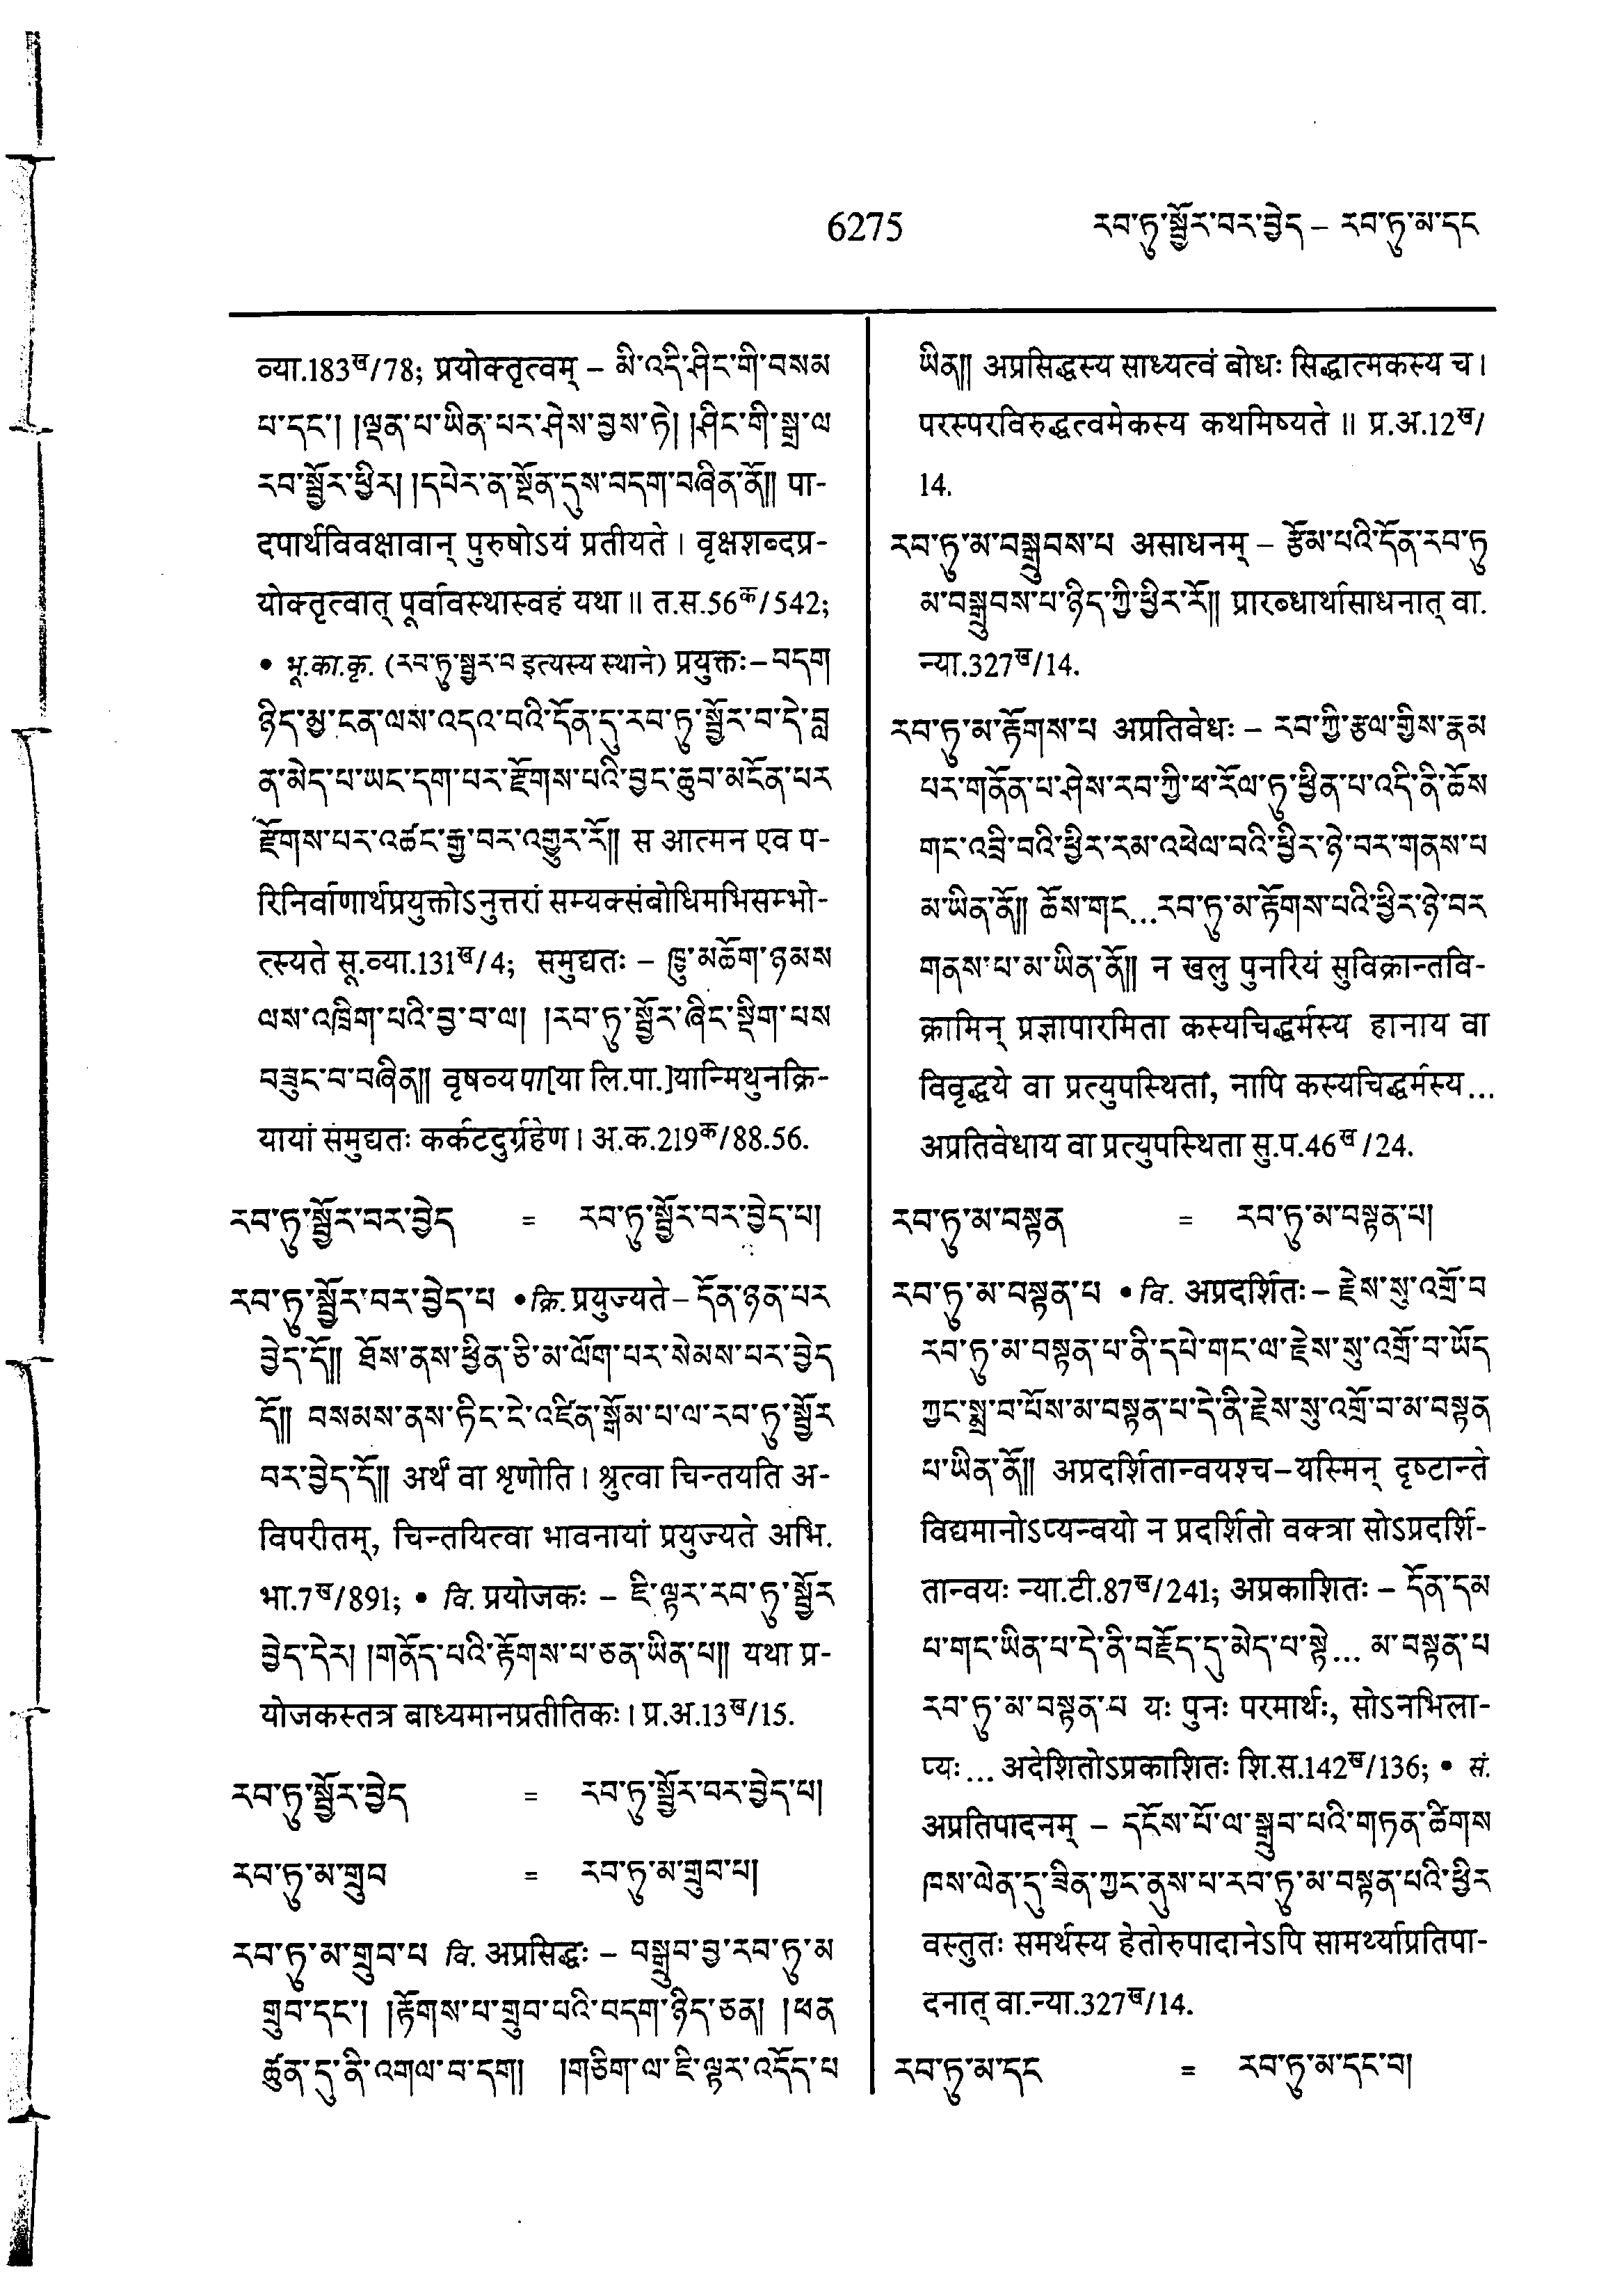 6275
རབ་ཏུ་སྦྱོར་བར་བྱེད – རབ་ཏུ་མ་དང
व्या.183ख/78; प्रयोक्तृत्वम् – མི་འདི་ཤིང་གི་བསམ
པ་དང་། །ལྡན་པ་ཡིན་པར་ཤེས་བྱས་ཏེ། །ཤིང་གི་སྒྲ་ལ
རབ་སྦྱོར་ཕྱིར། །དཔེར་ན་སྔོན་དུས་བདག་བཞིན་ནོ།། पा-
दपार्थविवक्षावान् पुरुषोऽयं प्रतीयते । वृक्षशब्दप्र-
योक्तृत्वात् पूर्वावस्थास्वहं यथा ॥ त.स.56क/542;
• भू.का.कृ. (རབ་ཏུ་སྦྱར་བ इत्यस्य स्थाने) प्रयुक्तः – བདག
ཉིད་མྱ་ངན་ལས་འདའ་བའི་དོན་དུ་རབ་ཏུ་སྦྱོར་བ་དེ་བླ
ན་མེད་པ་ཡང་དག་པར་རྫོགས་པའི་བྱང་ཆུབ་མངོན་པར
རྫོགས་པར་འཚང་རྒྱ་བར་འགྱུར་རོ།། स आत्मन एव प-
रिनिर्वाणार्थप्रयुक्तोऽनुत्तरां सम्यक्संबोधिमभिसम्भो-
त्स्यते सू.व्या.131ख/4; समुद्यतः – ཁྱུ་མཆོག་ཉམས
ལས་འཁྲིག་པའི་བྱ་བ་ལ། །རབ་ཏུ་སྦྱོར་ཞིང་སྡིག་པས
བཟུང་བ་བཞིན།། वृषव्यपा[या लि.पा.]यान्मिथुनक्रि-
यायां समुद्यतः कर्कटदुर्ग्रहेण । अ.क.219क/88.56.
རབ་ཏུ་སྦྱོར་བར་བྱེད = རབ་ཏུ་སྦྱོར་བར་བྱེད་པ།
རབ་ཏུ་སྦྱོར་བར་བྱེད་པ • क्रि. प्रयुज्यते – དོན་ཉན་པར
བྱེད་དོ།། ཐོས་ནས་ཕྱིན་ཅི་མ་ལོག་པར་སེམས་པར་བྱེད
དོ།། བསམས་ནས་ཏིང་ངེ་འཛིན་སྒོམ་པ་ལ་རབ་ཏུ་སྦྱོར
བར་བྱེད་དོ།། अर्थं वा श‍ृणोति । श्रुत्वा चिन्तयति अ-
विपरीतम्, चिन्तयित्वा भावनायां प्रयुज्यते अभि.
भा.7ख/891; • वि. प्रयोजकः – ཇི་ལྟར་རབ་ཏུ་སྦྱོར
བྱེད་དེར། །གནོད་པའི་རྟོགས་པ་ཅན་ཡིན་པ།། यथा प्र-
योजकस्तत्र बाध्यमानप्रतीतिकः । प्र.अ.13ख/15.
རབ་ཏུ་སྦྱོར་བྱེད = རབ་ཏུ་སྦྱོར་བར་བྱེད་པ།
རབ་ཏུ་མ་གྲུབ = རབ་ཏུ་མ་གྲུབ་པ།
རབ་ཏུ་མ་གྲུབ་པ वि. अप्रसिद्धः – བསྒྲུབ་བྱ་རབ་ཏུ་མ
གྲུབ་དང་། །རྟོགས་པ་གྲུབ་པའི་བདག་ཉིད་ཅན། །ཕན
ཚུན་དུ་ནི་འགལ་བ་དག། །གཅིག་ལ་ཇི་ལྟར་འདོད་པ
ཡིན།། अप्रसिद्धस्य साध्यत्वं बोधः सिद्धात्मकस्य च ।
परस्परविरुद्धत्वमेकस्य कथमिष्यते ॥ प्र.अ.12ख/
14.
རབ་ཏུ་མ་བསྒྲུབས་པ असाधनम् – རྩོམ་པའི་དོན་རབ་ཏུ
མ་བསྒྲུབས་པ་ཉིད་ཀྱི་ཕྱིར་རོ།། प्रारब्धार्थासाधनात् वा.
न्या.327ख/14.
རབ་ཏུ་མ་རྟོགས་པ अप्रतिवेधः – རབ་ཀྱི་རྩལ་གྱིས་རྣམ
པར་གནོན་པ་ཤེས་རབ་ཀྱི་ཕ་རོལ་ཏུ་ཕྱིན་པ་འདི་ནི་ཆོས
གང་འབྲི་བའི་ཕྱིར་རམ་འཕེལ་བའི་ཕྱིར་ཉེ་བར་གནས་པ
མ་ཡིན་ནོ།། ཆོས་གང...རབ་ཏུ་མ་རྟོགས་པའི་ཕྱིར་ཉེ་བར
གནས་པ་མ་ཡིན་ནོ།། न खलु पुनरियं सुविक्रान्तवि-
क्रामिन् प्रज्ञापारमिता कस्यचिद्धर्मस्य हानाय वा
विवृद्धये वा प्रत्युपस्थिता, नापि कस्यचिद्धर्मस्य...
अप्रतिवेधाय वा प्रत्युपस्थिता सु.प.46ख/24.
རབ་ཏུ་མ་བསྟན = རབ་ཏུ་མ་བསྟན་པ།
རབ་ཏུ་མ་བསྟན་པ • वि. अप्रदर्शितः – རྗེས་སུ་འགྲོ་བ
རབ་ཏུ་མ་བསྟན་པ་ནི་དཔེ་གང་ལ་རྗེས་སུ་འགྲོ་བ་ཡོད
ཀྱང་སྨྲ་བ་པོས་མ་བསྟན་པ་དེ་ནི་རྗེས་སུ་འགྲོ་བ་མ་བསྟན
པ་ཡིན་ནོ།། अप्रदर्शितान्वयश्च – यस्मिन् दृष्टान्ते
विद्यमानोऽप्यन्वयो न प्रदर्शितो वक्त्रा सोऽप्रदर्शि-
तान्वयः न्या.टी.87ख/241; अप्रकाशितः – དོན་དམ
པ་གང་ཡིན་པ་དེ་ནི་བརྗོད་དུ་མེད་པ་སྟེ... མ་བསྟན་པ
རབ་ཏུ་མ་བསྟན་པ यः पुनः परमार्थः, सोऽनभिला-
प्यः... अदेशितोऽप्रकाशितः शि.स.142ख/136; • सं.
अप्रतिपादनम् – དངོས་པོ་ལ་སྒྲུབ་པའི་གཏན་ཚིགས
ཁས་ལེན་དུ་ཟིན་ཀྱང་ནུས་པ་རབ་ཏུ་མ་བསྟན་པའི་ཕྱིར
वस्तुतः समर्थस्य हेतोरुपादानेऽपि सामर्थ्याप्रतिपा-
दनात् वा.न्या.327ख/14.
རབ་ཏུ་མ་དང = རབ་ཏུ་མ་དང་བ།